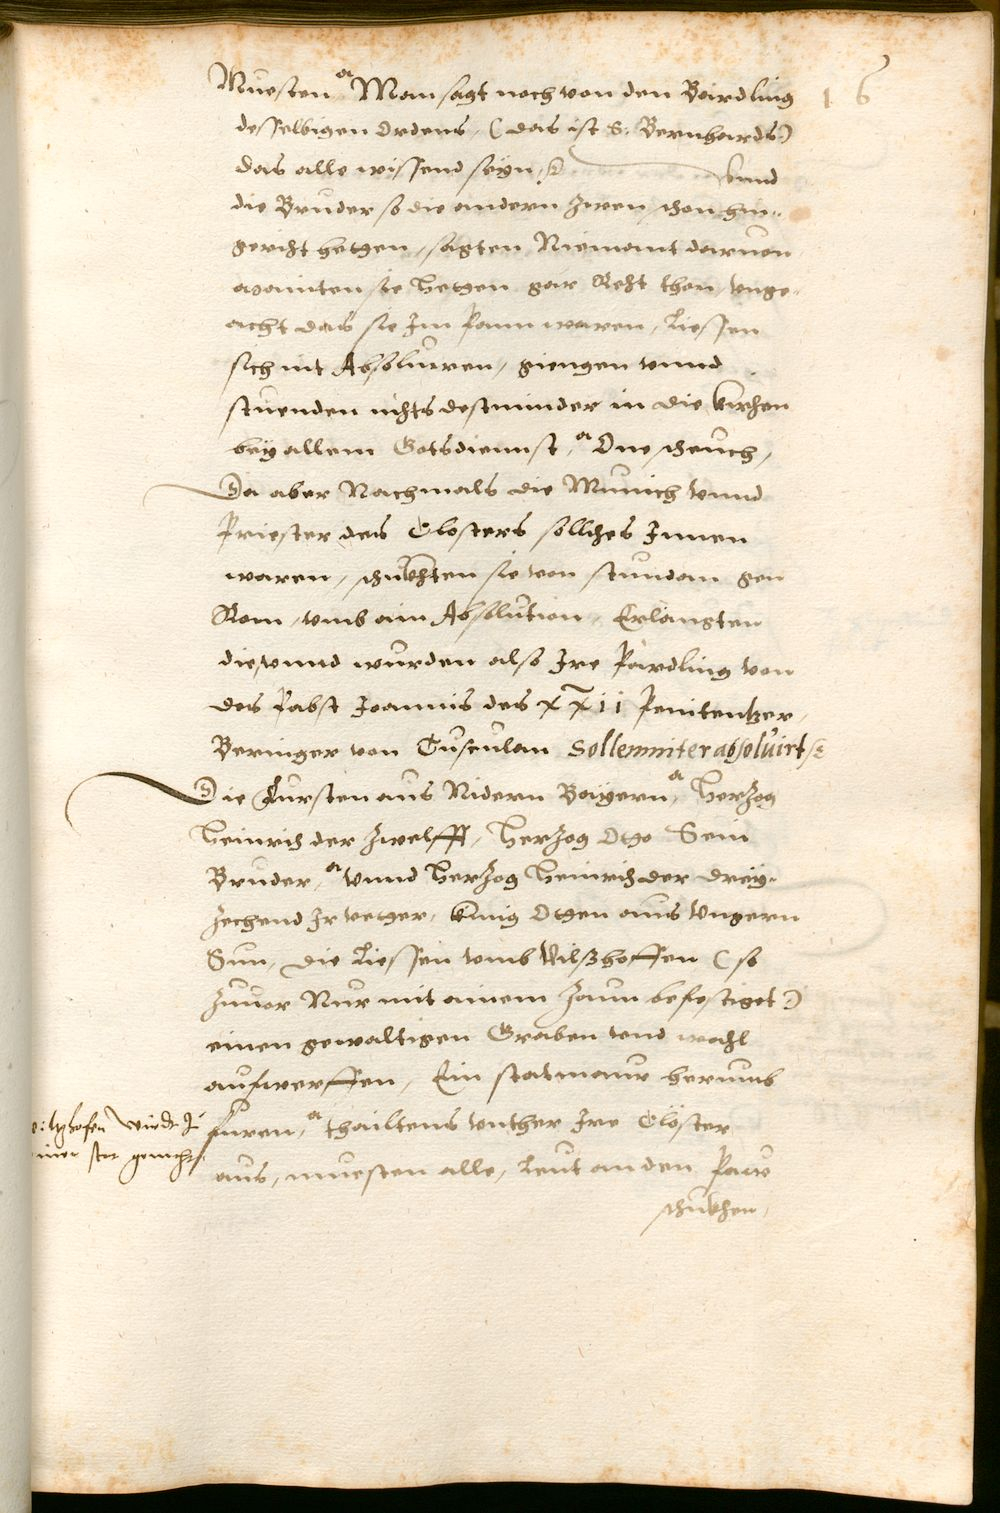 16
Muesten, Man sagt noch von den Bairdling
desselbigen Ordens, (das ist S. Bernhards)
das alle wissend seyn, vnnd
die Bruder so die andern zwen schon hin-
gericht hetten, sagten Niemant daruon
mainten sie hetten gar Recht thon, vnge-
acht das sie Im Pann waren, Liessen
sich nit Absoluirn, giengen vnnd
stuenden nichts destminder in die kirchen
bey allem Gotsdiennst, One scheuch,
Da aber Nachmals die Munich vnnd
Priester des Closters sollches Innen
waren, schickhten sie von stundan gen
Rom, vmb ain Absolution, Erlangten
die, vnnd wurden also Ire Pärdling von
des Pabst Joannis des XXII Penitentzer,
Beringer von Tusculan Sollemniter absoluirt
Die Fursten aus Nidern Bayern, Herzog
Heinrich der Zwelfft, Herzog Otto Sein
Bruder, vnnd Herzog Heinrich der drey-
zechend Ir vetter, kunig Otten aus Vngern
Sun, die Liessen vmb Vilßhoffen (so
zuuor Nur mit ainem zaun befestiget)
einen gewaltigen Graben vnd wahl
aufwerffen, Ein statmaur herumb
furen, thailtens vnther Ire Clöster
aus, muesten alle, Leut an den Paw
schickhen,
Viltzhofen wirdt zu
einer stat gemacht.